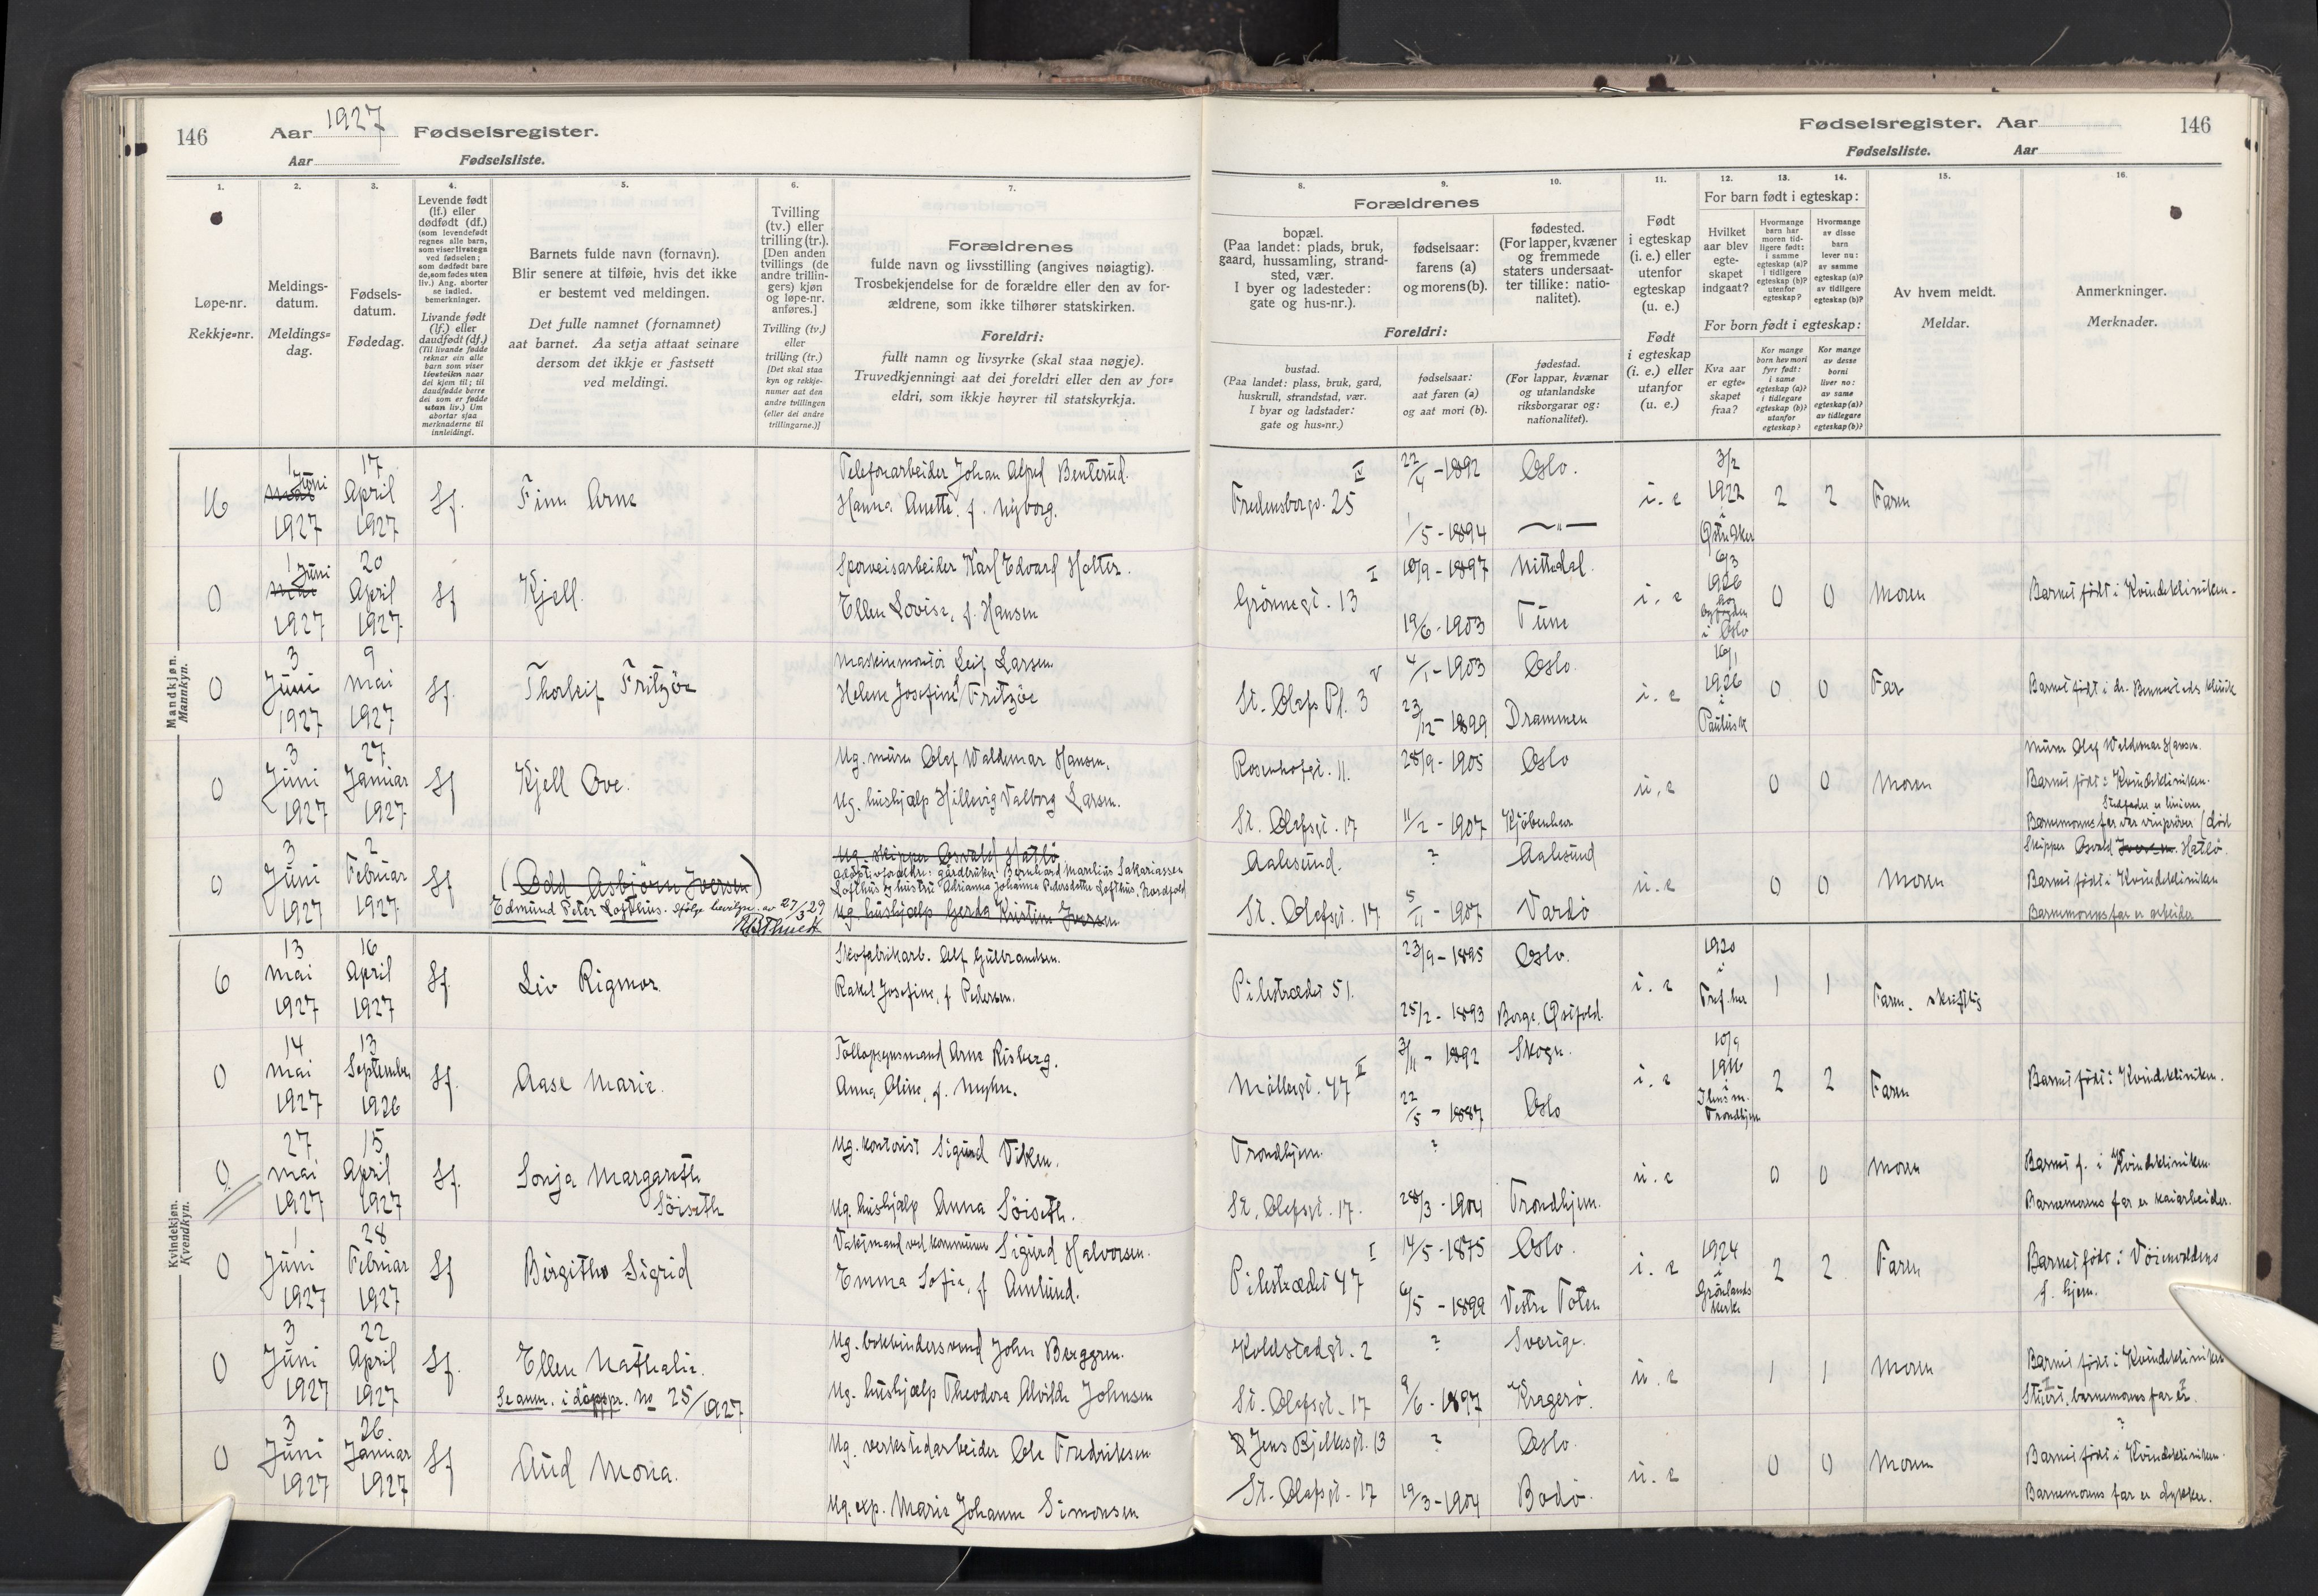 146
Aar 1927 Fødselsregister.
Aar Fødselsliste.
1.
Løpe-nr.
Rekkje-nr.
2.
Meldings-
datum.
Meldings-
dag.
3.
Fødsels-
datum.
Fødedag.
4.
Levende født
(lf.) eller
dødfødt (df.)
(som levendefødt
regnes alle barn,
som viser livstegn
ved fødselen;
som dødfødt bare
de, som fødes uten
liv.) Ang. aborter
se indled.
bemerkninger.
Livande født
(lf.) eller
daudfødt (df.)
(Til livande fødde
reknar ein alle
barn som viser
livsteikn naar
dei kjem til; til
daudfødde berre
dei som er fødde
utan liv.) Um
abortar sjaa
merknaderne til
innleidingi.
5.
Barnets fulde navn (fornavn).
Blir senere at tilføie, hvis det ikke
er bestemt ved meldingen.
Det fulle namnet (fornamnet)
aat barnet. Aa setja attaat seinare
dersom det ikkje er fastsett
ved meldingi.
6.
Tvilling
(tv.) eller
trilling (tr.).
[Den anden
tvillings (de
andre trillin-
gers) kjøn
og løpe-nr.
anføres.]
Tvilling (tv.)
eller
trilling (tr.)
[Det skal staa
kyn og rekkje-
numer aat den
andre tvillingen
(eller dei andre
trillingarne.)]
7.
Forældrenes
fulde navn og livsstilling (angives nøiagtig).
Trosbekjendelse for de forældre eller den av for-
ældrene, som ikke tilhører statskirken.
Foreldri:
fullt namn og livsyrke (skal staa nøgje).
Truvedkjenningi aat dei foreldri eller den av for-
eldri, som ikkje høyrer til statskyrkja.
Fødselsregister. Aar
146
Fødselsliste. Aar
Forældrenes
8.
bopæl.
(Paa landet: plads, bruk,
gaard, hussamling, strand-
sted, vær.
I byer og ladesteder:
gate og hus-nr.).
9.
fødselsaar:
farens (a)
og morens (b).
10.
fødested.
(For lapper, kvæner
og fremmede
staters undersaat-
ter tillike: natio-
nalitet).
Foreldri:
bustad.
(Paa landet: plass, bruk, gard,
huskrull, strandstad, vær.
I byar og ladstader:
gate og hus-nr.)
fødselsaar:
aat faren (a)
og aat mori (b).
fødestad.
(For lappar, kvænar
og utanlandske
riksborgarar og:
nationalitet).
11.
Født
i egteskap
(i. e.) eller
utenfor
egteskap
(u. e.)
Født
i egteskap
(i. e.) eller
utanfor
(u. e.)
For barn født i egteskap:
12.
Hvilket
aar blev
egte-
skapet
indgaat?
13.
Hvormange
barn har
moren tid-
ligere født:
i samme
egteskap (a)?
i tidligere
egteskap (b)?
utenfor
egteskap?
14.
Hvormange
av disse
barn
lever nu:
av samme
egteskap (a)?
av tidligere
egteskap (b)?
For born født i egteskap:
Kva aar
er egte-
skapet
fraa?
Kor mange
born hev mori
fyrr født:
i same
egteskap (a)?
i tidlegare
egteskap (b)?
utanfor
egteskap?
Kor mange
av desse
borni
liver no:
av same
egteskap (a)?
av tidlegare
egteskap (b)?
15.
Av hvem meldt.
Meldar.
16.
Anmerkninger.
Merknader.
Mandkjøn.
Mannkyn.
16
1
Juni
Mai
1927
17
April
1927
Lf.
Finn Arne
Telefonarbeider Johan Alfred Benterud.
Hanna Anette, f. Nyborg.
Fredensborgv. 25 IV
22/4 - 1892 Oslo.
1/5 - 1894 —"—
i. e
3/2
1922
i
Østre Aker
2 2 Faren
0
1
Juni
Mai
1927
20
April
1927
Lf
Kjell.
Sporveisarbeider Karl Edvard Holter.
Ellen Lovise, f. Hansen
Grønnegt. 13 I
10/9 - 1897 Nittedal.
19/6 - 1903 Tune
i. e
6/3
1926
hos
byfogden
i Oslo
0 0 Moren
Barnet født i Kvindeklinikken.
0
3
Juni
1927
9
Mai
1927
Lf.
Thorleif Fritzöe
Maskinmontör Leif Larsen
Helene Josefine f Fritzöe
St. Olafs Pl. 3 V
4/1 - 1903 Oslo.
23/12 - 1899 Drammen
i. e
16/1
1926
i
Pauluskk
0 0 Far
Barnet født i dr. Bennesteds klinik
0
3
Juni
1927
27
Januar
1927
Lf
Kjell Ove.
Ug. murer Olaf Waldemar Hansen.
Ug. hushjælp Hillevig Valborg Larsen.
Rosenhofgt. 11.
St. Olafsgt. 17
28/9 - 1905 Oslo
11/2 - 1907 Kjöbenhavn
u. e
0 0 Moren
Murer Olaf Waldemar Hansen.
Barnet født i Kvindeklinikken.
Barnemorens far var vinprøver (død
0
3
Juni
1927
2
Februar
1927
Lf
(Odd Asbjörn Iversen)
Edmund Peter Lofthus. Ifölge bevilgn. av 27/3 29
Ug. skipper Osvald Hatlö
Adoptivforældre: gårdbruker Bernhard Marelius Sakariassen
Lofthus og hustru Adrianna Johanna Pedersdatter Lofthus, Nordfold
Ug. hushjælp Gerda Kristine Iversen
Aalesund.
St. Olafsgt. 17
? Aalesund
5/11 - 1907 Vardö
u. e
0 0 Moren
Skipper Osvald Iversen Hatlö
Barnet født i Kvindeklinikken
Barnemorens far er arbeider
Kvindekjøn.
Kvendkyn.
6
13
Mai
1927
16
April
1927
Lf.
Liv Rigmor
Skofabrikarb. Alf Gulbrandsen.
Rakel Josefine, f Pedersen.
Pilestrædet 51.
23/9 - 1895 Oslo.
25/2 - 1893 Borge, Østfold.
i. e
1920
i
Tref. her
1 1 Faren. skriftlig
0
14
Mai
1927
13
September
1926
Lf.
Aase Marie.
Tollopsynsmand Arne Risberg.
Anna Oline, f. Myhre.
Möllergt. 47 II
3/11 - 1892 Skogn.
22/5 - 1887 Oslo
i. e
10/9
1916
i
Ilens m.
Trondhjem
2 2 Faren
Barnet født i Kvindeklinikken.
0
27
Mai
1927
15
April
1927
Lf.
Sonja Margareth
Söiseth
Ug. kontorist Sigurd Viken.
Ug. hushjælp Anna Söiseth.
Trondhjem.
St. Olafsgt. 17.
?
28/3 - 1904 Trondhjem.
u. e
0 0 Moren
Barnet f. i Kvindeklinikken.
Barnemorens far er kaiarbeider.
0
1
Juni
1927
28
Februar
1927
Lf
Birgitha Sigrid
Vaktmand ved kommunen Sigurd Halvorsen.
Emma Sofie, f Amlund.
Pilestrædet 47 I
14/5 - 1875 Oslo.
6/5 - 1899 Vestre Toten
i. e
1924
i
Grønlands
kirke
2 2 Faren
Barnet født i Vöienvoldens
f. hjem.
0
3
Juni
1927
22
April
1927
Lf.
Ellen Nathalie.
Se anm. i dåppr. No 25/1927
Ug. bokbindersvend John Berggren.
Ug. hushjælp Theodora Alvilde Johnsen
Koldstadgt. 2
St. Olafsgt. 17
? Sverige.
9/6 - 1897 Kragerö.
u. e
1 1 Moren
Barnet født i Kvindeklinikken
barnemorens far er
?
0
3
Juni
1927
26
Januar
1927
Lf
Aud Mona.
Ug. verkstedarbeider Ole Fredriksen
Ug. exp. Marie Johanne Simonsen
Jens Bjelkesgt. 13
St. Olafsgt - 17
? Oslo.
19/3 - 1904 Bodö.
u. e
0 0 Moren
Barnet født i Kvindeklinikken.
Barnemorens far er dykker.